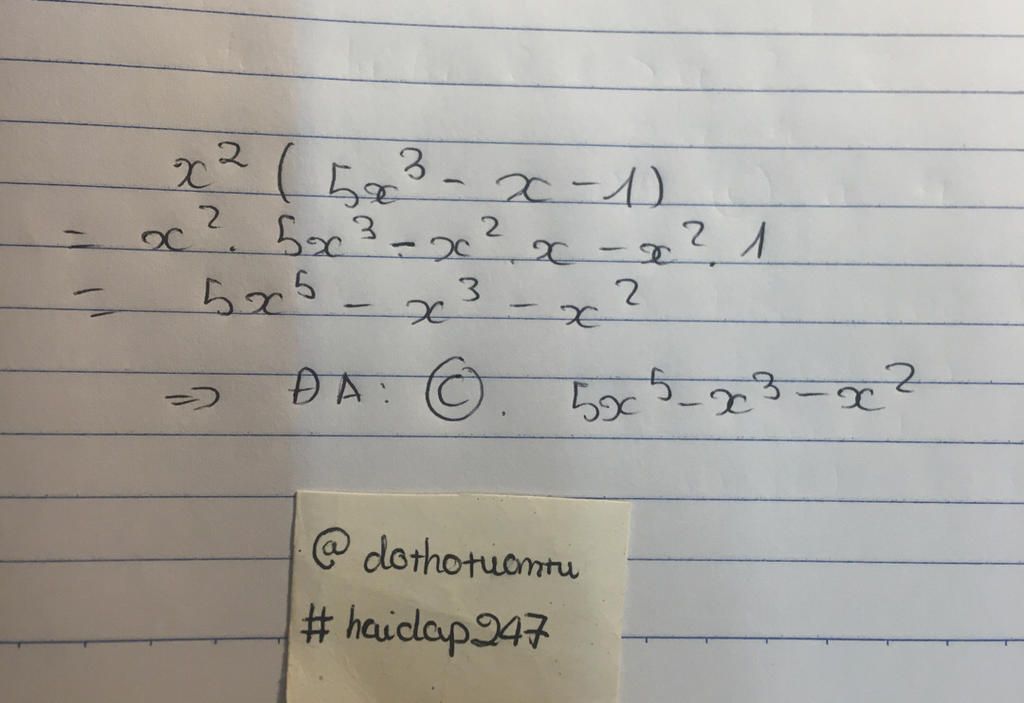 x² ( 5x³ - x - 1)
= x² . 5x³ - x² . x - x² . 1
= 5x⁵ - x³ - x²
=> ĐA: Ⓒ. 5x⁵ - x³ - x²
@ dothotuantu
# haidap247